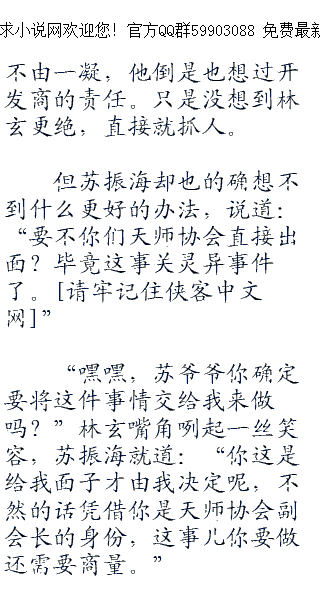 求小说网欢迎您! 官方QQ群59903088 免费最新
不由一凝，他倒是也想过开
发商的责任。只是没想到林
玄更绝，直接就抓人。
但苏振海却也的确想不
到什么更好的办法，说道：
“要不你们天师协会直接出
面？毕竟这事关灵异事件
了。[请牢记住侠客中文
网]”
“嘿嘿，苏爷爷你确定
要将这件事情交给我来做
吗？”林玄嘴角咧起一丝笑
容，苏振海就道：“你这是
给我面子才由我决定呢，不
然的话凭借你是天师协会副
会长的身份，这事儿你要做
还需要商量。”